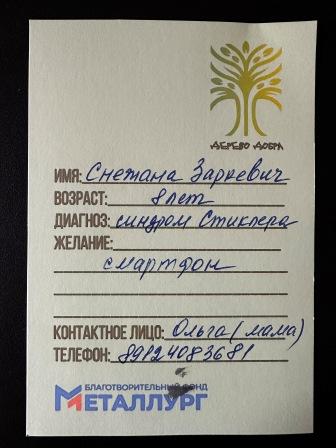 ДЕРЕВО ДОБРА
ИМЯ: Снежана Заркевич
ВОЗРАСТ: 8 лет
ДИАГНОЗ: синдром Стиклера
ЖЕЛАНИЕ:
смартфон
КОНТАКТНОЕ ЛИЦО: Ольга (мама)
ТЕЛЕФОН: 89124083681
БЛАГОТВОРИТЕЛЬНЫЙ ФОНД
МЕТАЛЛУРГ